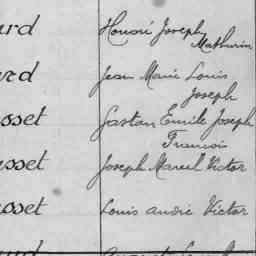 ard Honoré Joseph
Mathurin
ard Jean Marie Louis
Joseph
sset Gaston Emile Joseph
Francois
sset Joseph Marcel Victor
sset Louis André Victor